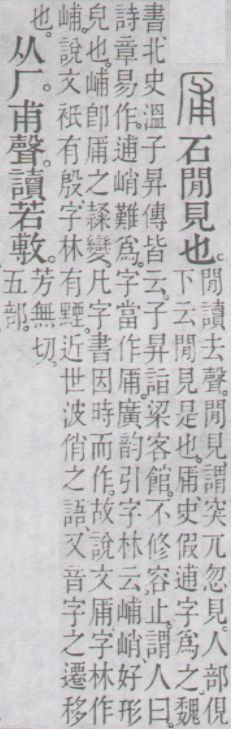 㕊 石閒見也。
閒讀去聲。閒見謂突兀忽見。人部俔
下云閒見是也。㕊、史假逋字爲之。魏
書北史溫子昇傳皆云。子昇詣梁客館。不修容止。謂人曰。
詩章易作。逋峭難爲。字當作㕊。廣韵引字林云。峬峭、好形
皃也。峬卽㕊之隸變。凡字書因時而作。故說文㕊字林作
峬。說文衹有殷。字林有黫。近世波俏之語、又音字之遷移
也。
从厂。甫聲。讀若敷。
芳無切。
五部。